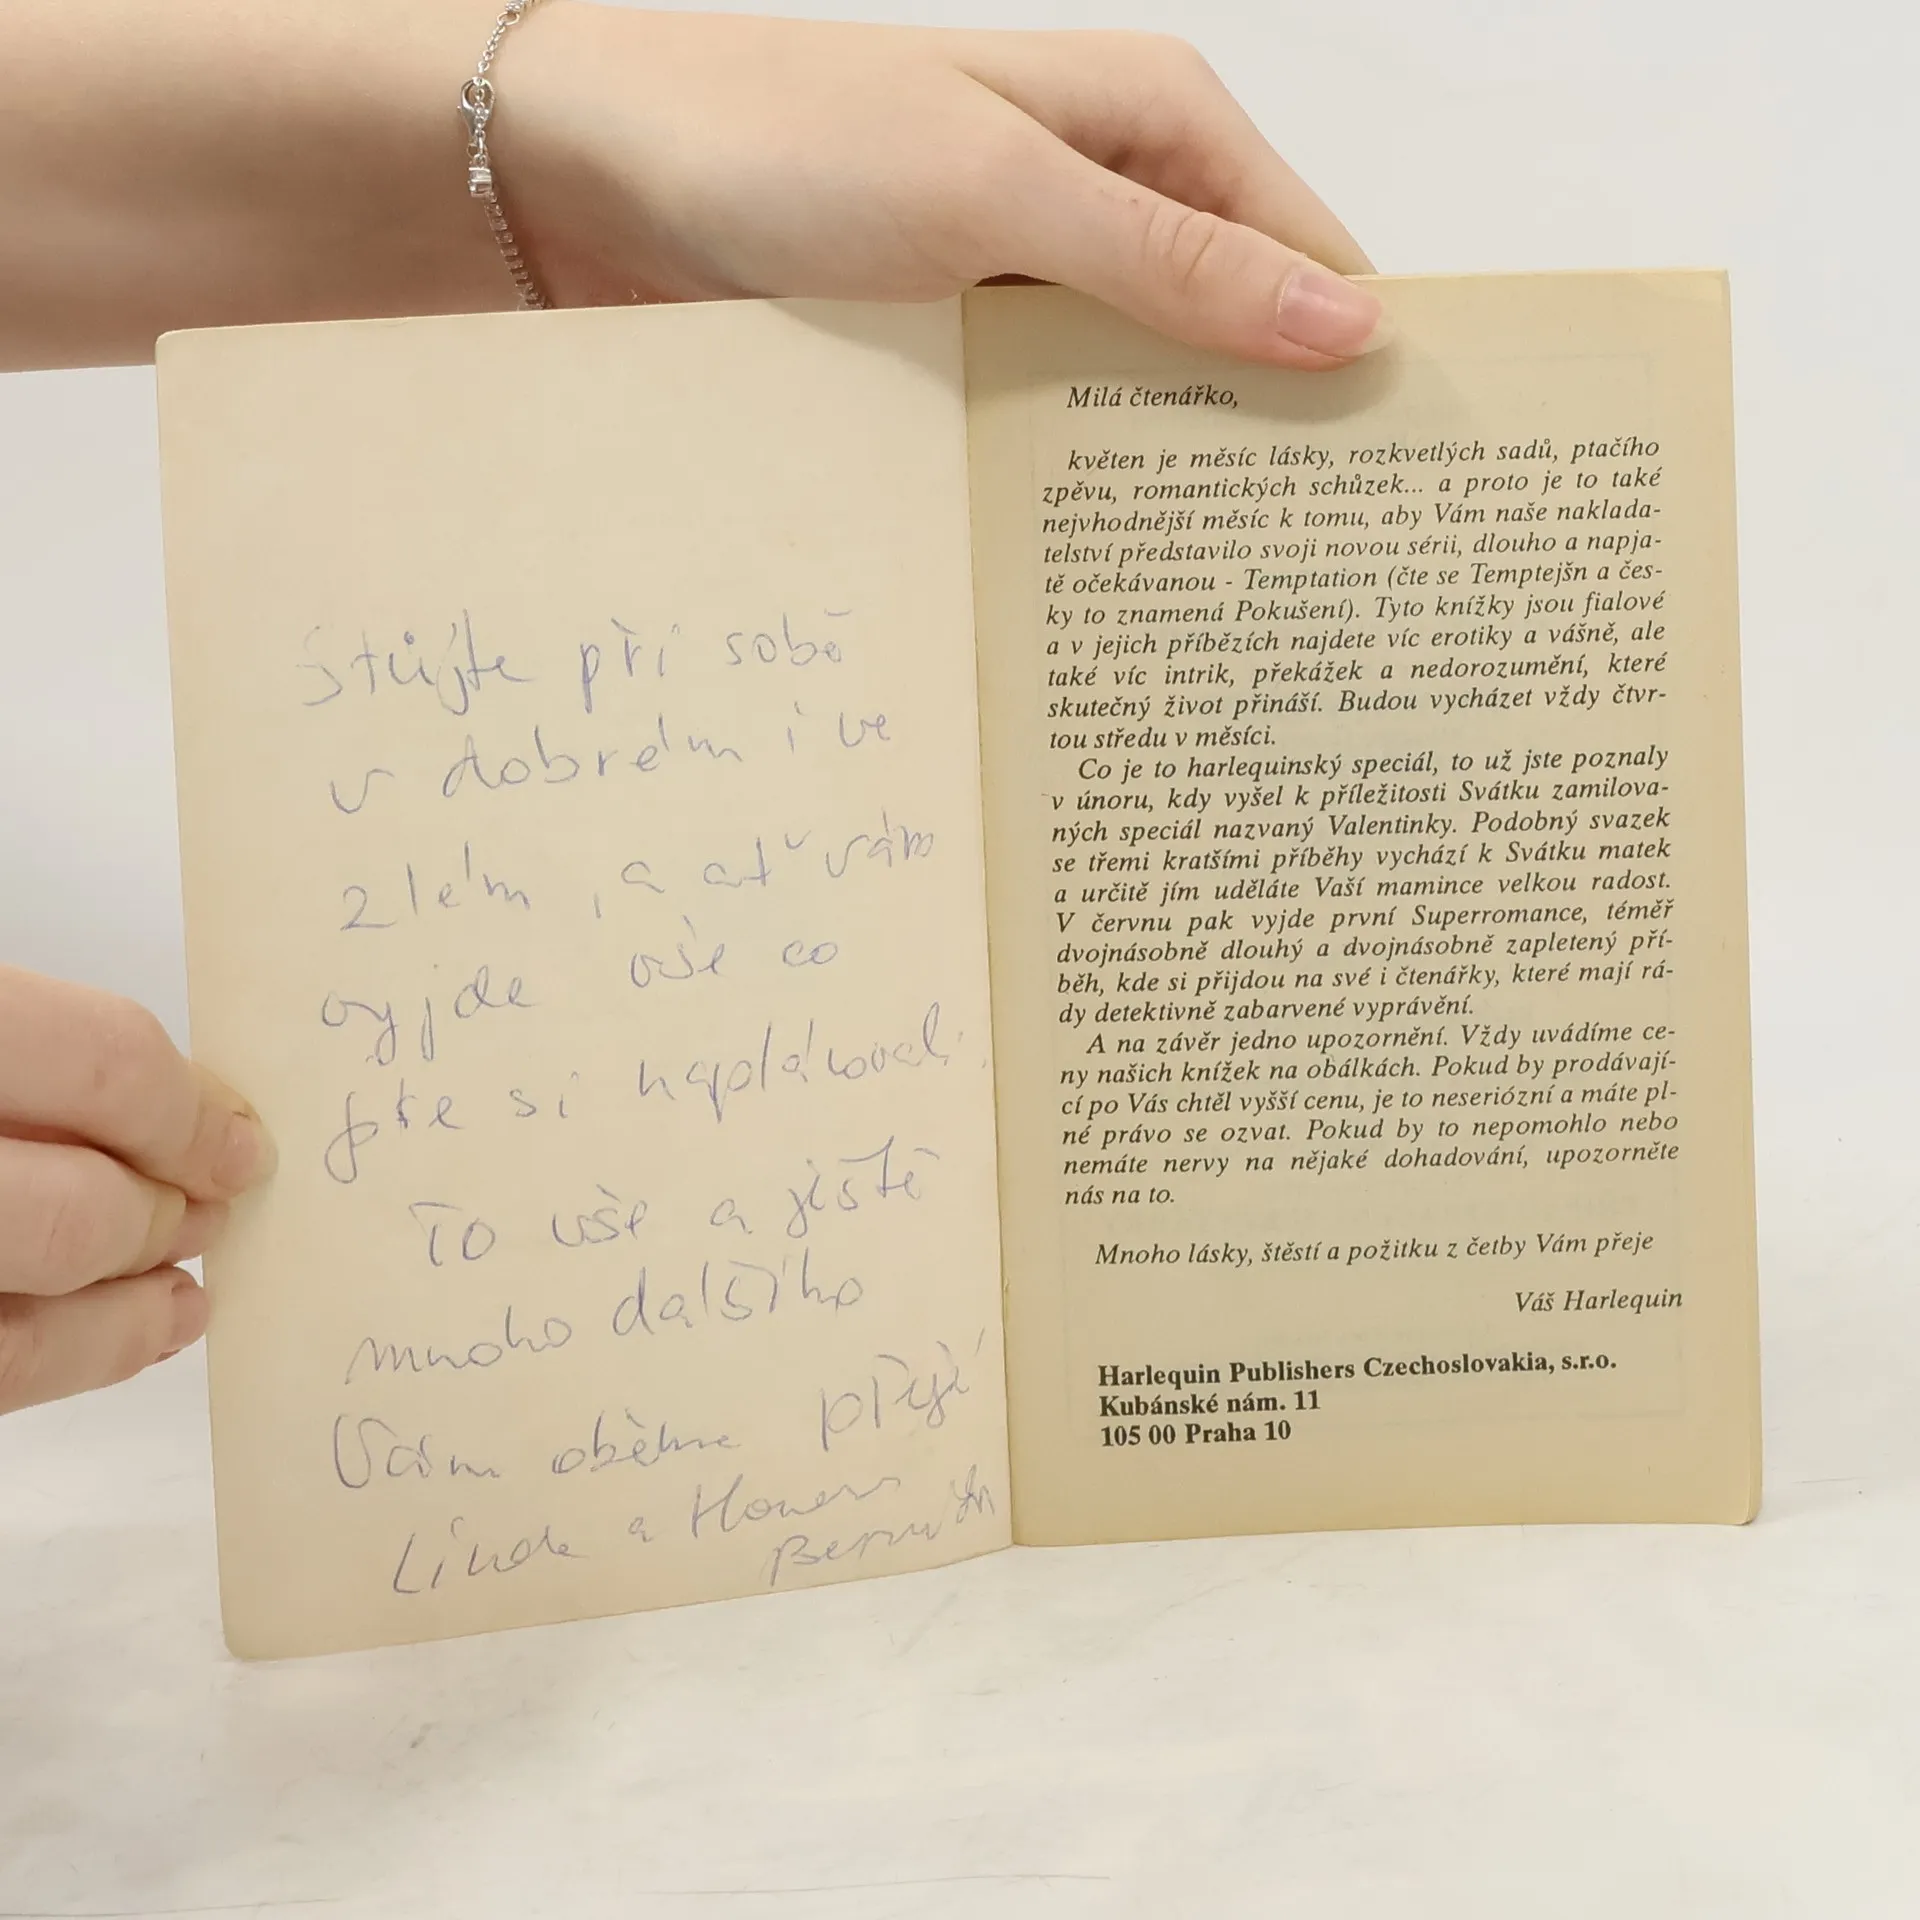 Stůjte při sobě
v dobrém i ve
zlém, a ať vám
vyjde vše co
jste si naplánovali.
To vše a ještě
mnoho dalšího
Vám oběma přejí
Linda a
Milá čtenářko,
květen je měsíc lásky, rozkvetlých sadů, ptačího
zpěvu, romantických schůzek... a proto je to také
nejvhodnější měsíc k tomu, aby Vám naše naklada-
telství představilo svoji novou sérii, dlouho a napja-
tě očekávanou - Temptation (čte se Temptejšn a čes-
ky to znamená Pokušení). Tyto knížky jsou fialové
a v jejich příbězích najdete víc erotiky a vášně, ale
také víc intrik, překážek a nedorozumění, které
skutečný život přináší. Budou vycházet vždy čtvr-
tou středu v měsíci.
Co je to harlequinský speciál, to už jste poznaly
v únoru, kdy vyšel k příležitosti Svátku zamilova-
ných speciál nazvaný Valentinky. Podobný svazek
se třemi kratšími příběhy vychází k Svátku matek
a určitě jím uděláte Vaší mamince velkou radost.
V červnu pak vyjde první Superromance, téměř
dvojnásobně dlouhý a dvojnásobně zapletený pří-
běh, kde si přijdou na své i čtenářky, které mají rá-
dy detektivně zabarvené vyprávění.
A na závěr jedno upozornění. Vždy uvádíme ce-
ny našich knížek na obálkách. Pokud by prodávají-
cí po Vás chtěl vyšší cenu, je to neseriózní a máte pl-
né právo se ozvat. Pokud by to nepomohlo nebo
nemáte nervy na nějaké dohadování, upozorněte
nás na to.
Mnoho lásky, štěstí a požitku z četby Vám přeje
Váš Harlequin
Harlequin Publishers Czechoslovakia, s.r.o.
Kubánské nám. 11
105 00 Praha 10